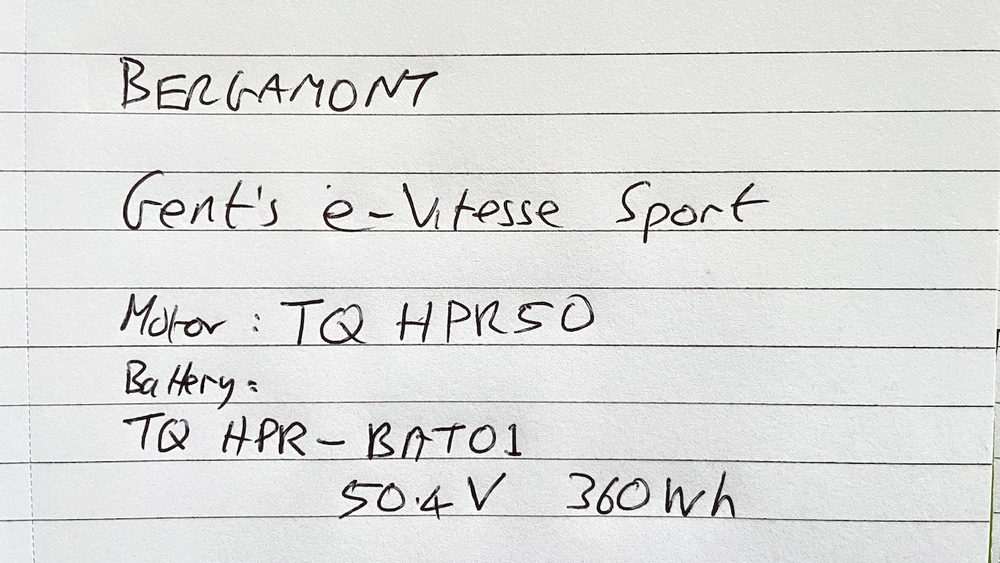 BERGAMONT
Gent's e-Vitesse Sport
Motor: TQ HPR50
Battery:
TQ HPR-BAT01
50.4V 360Wh